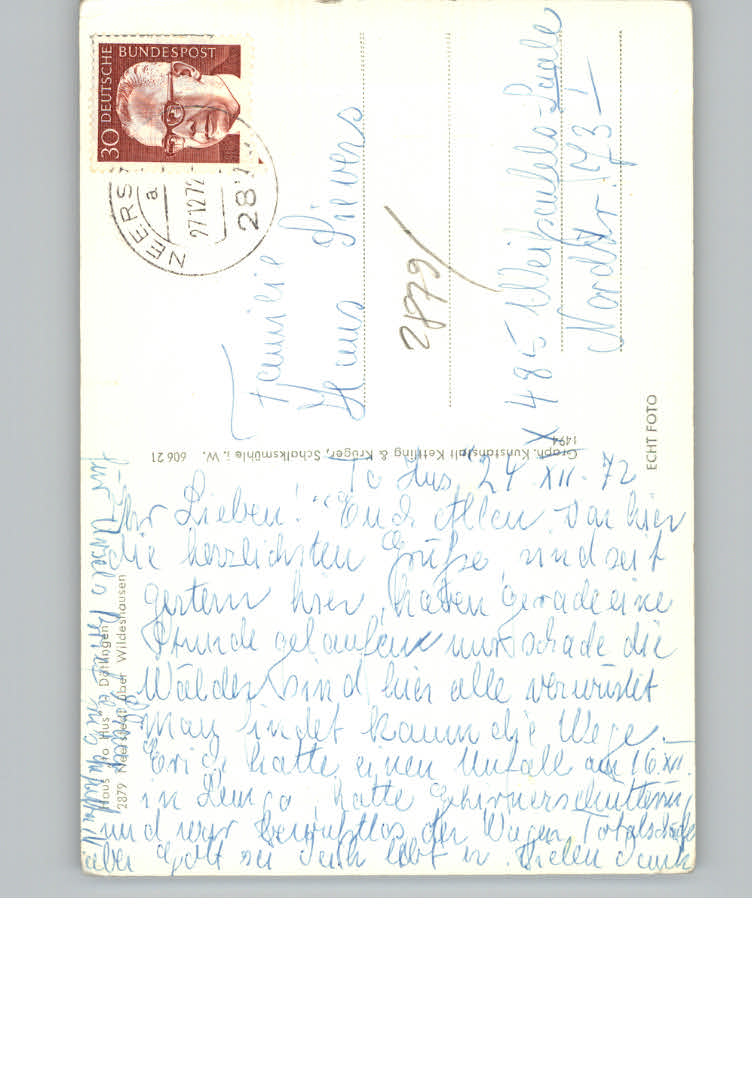 30 DEUTSCHE BUNDESPOST
NEERS
a
27.12.72
287
Familie
Hans Sievers
2879
X 485 Weißenfels-Saale
Nordstr. 73 I
ECHT FOTO
Graph. Kunstanstalt Kettling & Krüger, Schalksmühle i. W. 606 21
1494
To Hus, 24 XII. 72
Ihr Lieben! Euch Allen von hier
die herzlichsten Grüße, sind seit
gestern hier, haben gerade eine
Stunde gelaufen nur schade die
Wälder sind hier alle verwüstet
man findet kaum die Wege.
Erich hatte einen Unfall am 16. XII.
in Lemgo, hatte Gehirnerschütterung
und war bewußtlos der Wagen Totalschade
aber Gott sei Dank lebt er. Vielen Dank
für
Haus "To Hus" Dötlingen
2879 Neerstedt über Wildeshausen